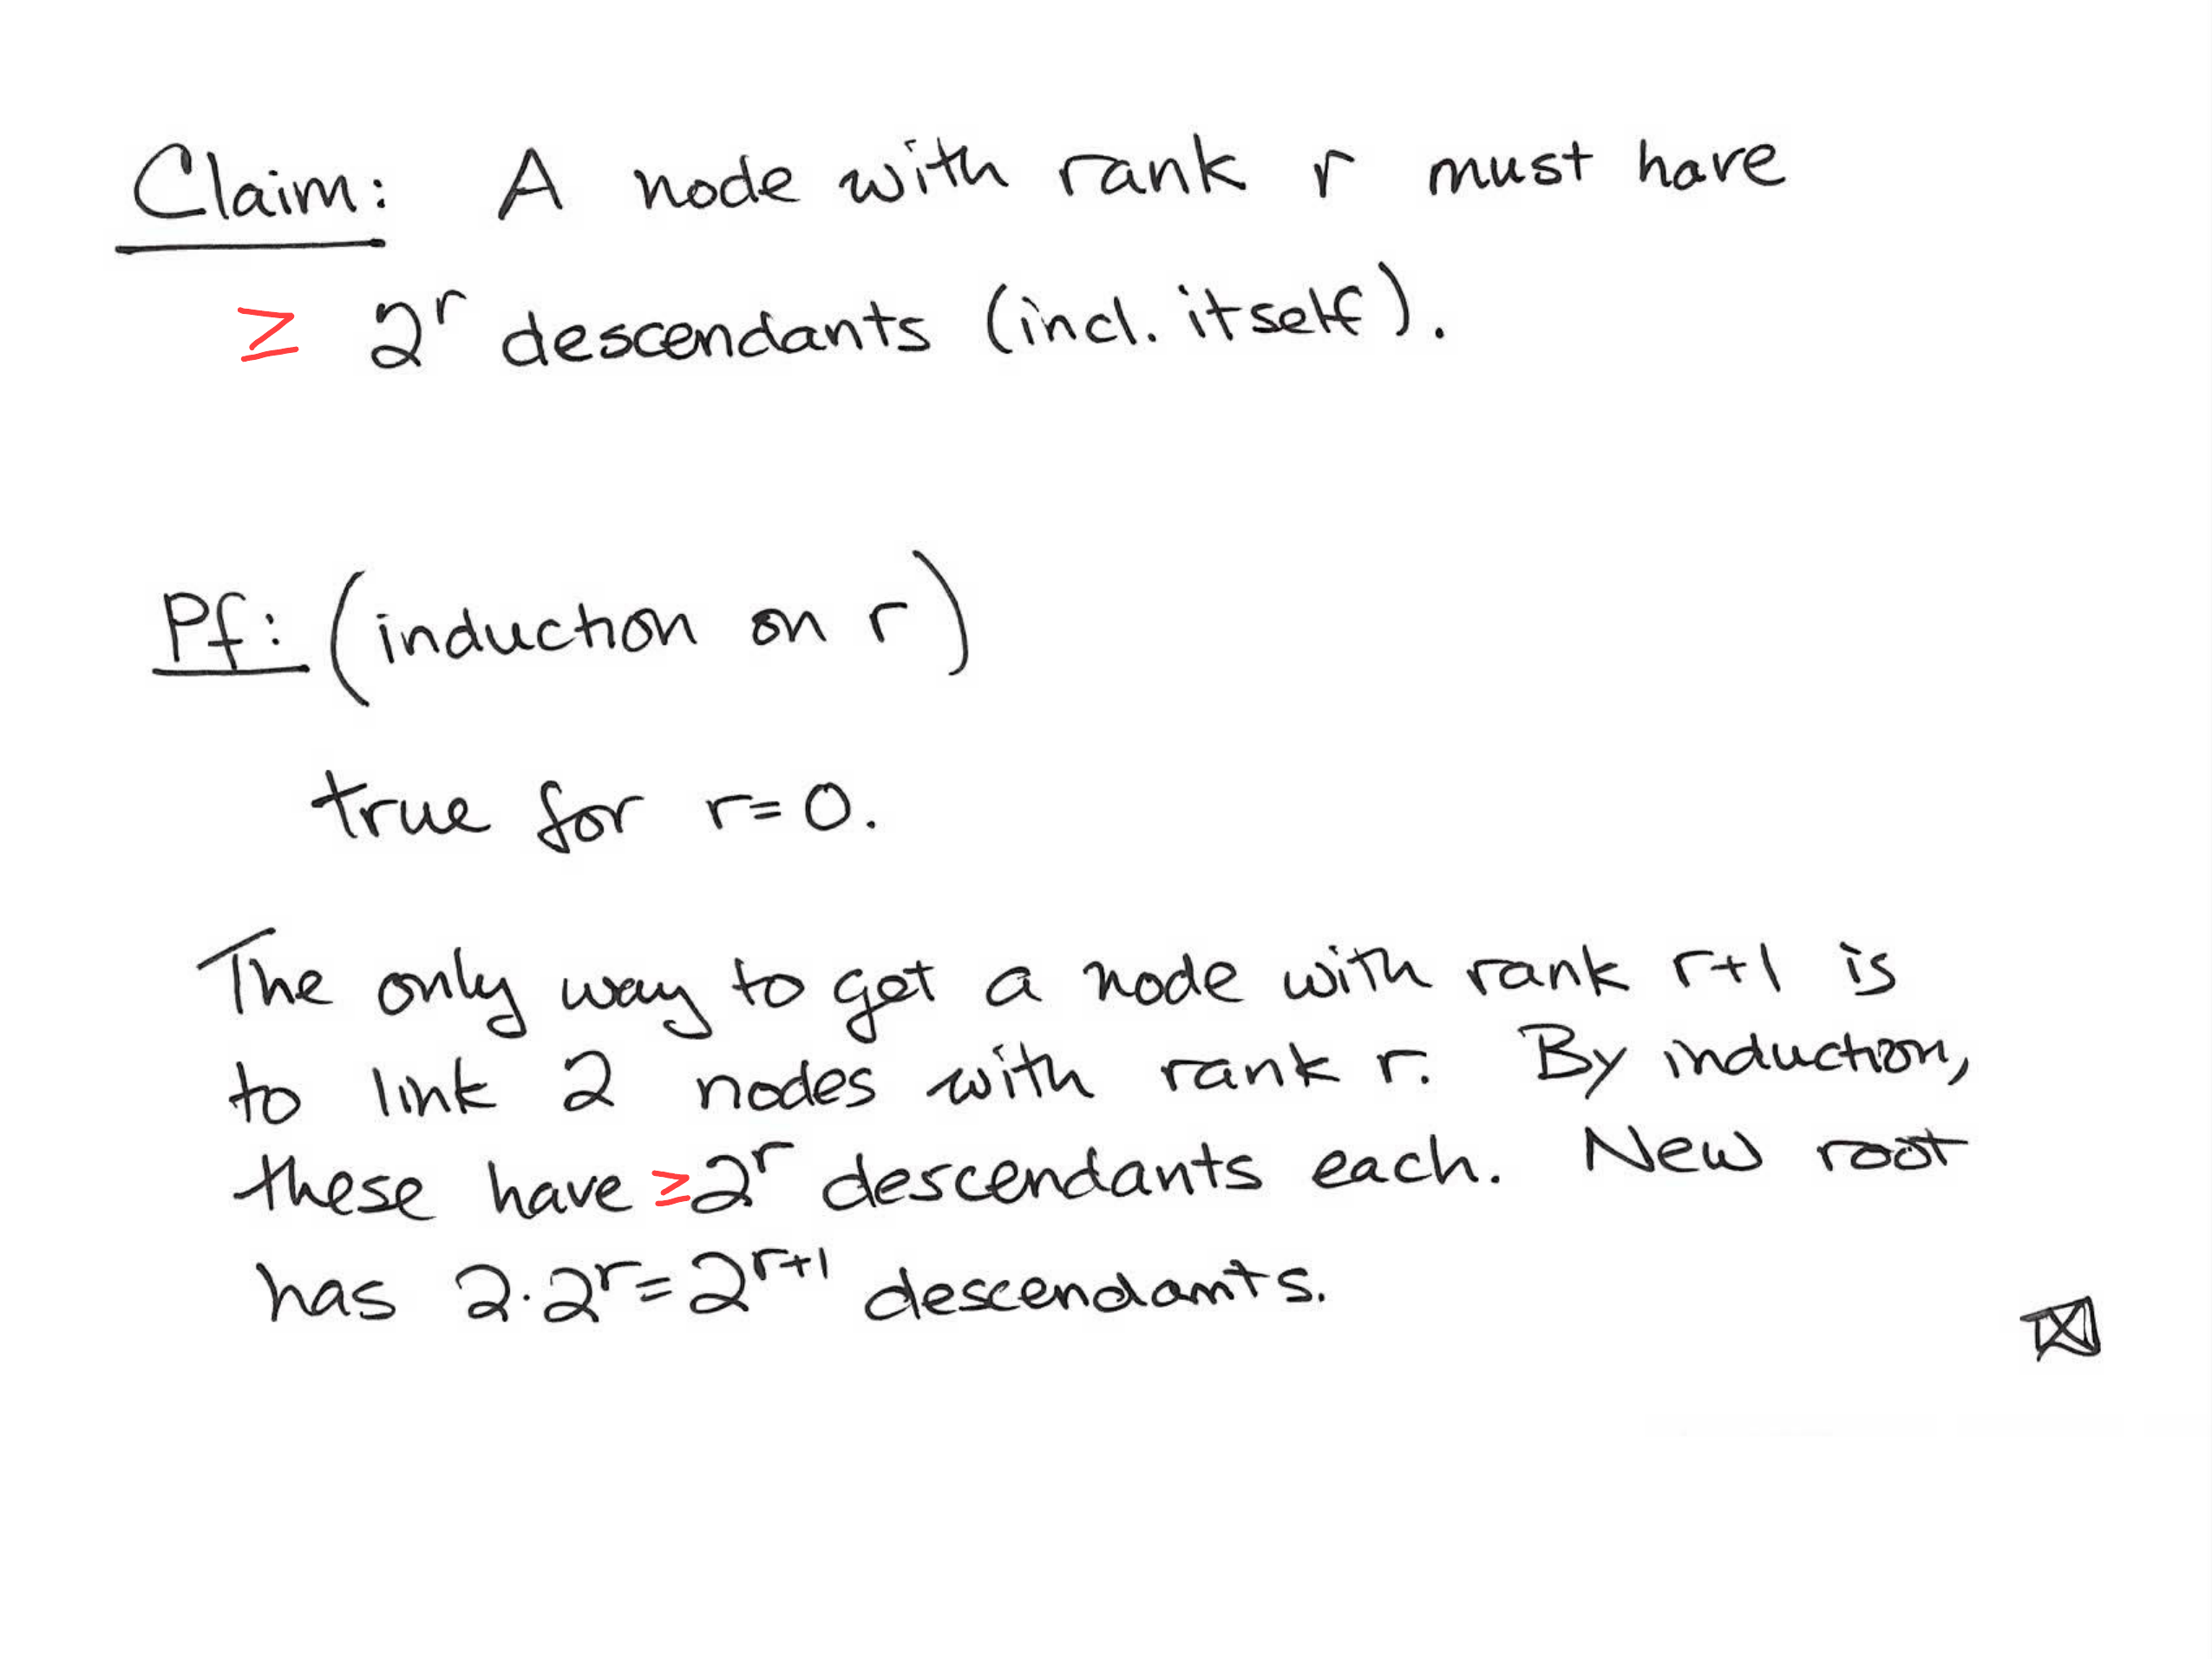 Claim: A node with rank r must have
≥ 2^r descendants (incl. itself).
Pf: (induction on r)
true for r=0.
The only way to get a node with rank r+1 is
to link 2 nodes with rank r. By induction,
these have ≥2^r descendants each. New root
has 2·2^r=2^{r+1} descendants.